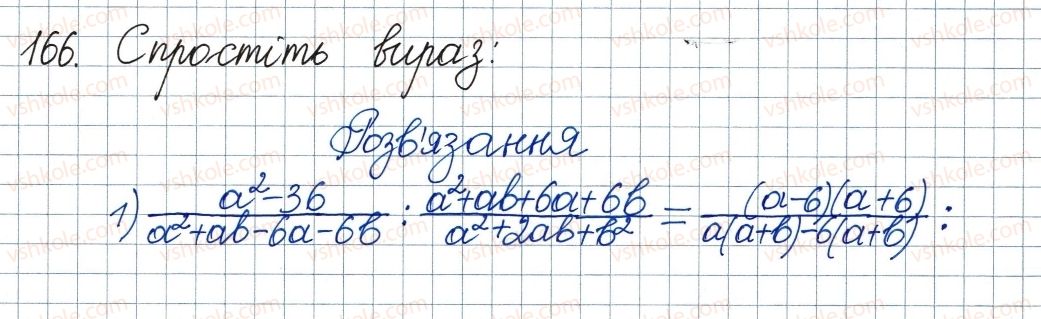 166. Спростіть вираз:
Розв'язання
1) \frac{a²-36}{a²+ab-6a-6b} : \frac{a²+ab+6a+6b}{a²+2ab+b²} = \frac{(a-6)(a+6)}{a(a+b)-6(a+b)} :